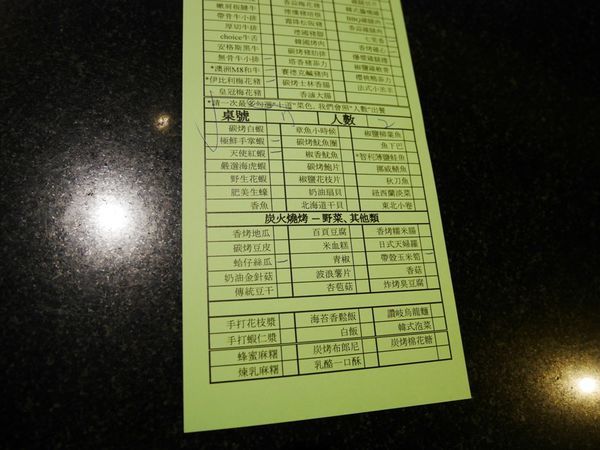 嫩肩板腱牛 香蒜梅花豬
帶骨牛小排 櫻樓培根
厚切牛排 霜降松阪豬 BBQ雞腿肉
choice牛舌 德國豬腳 香蒜雞腿肉
安格斯黑牛 韓國烤肉 七里香
無骨牛小排 碳烤豬肋排 香烤雞心
*澳洲M8和牛 塔香豬菲力 爆漿雞腱
*伊比利梅花豬 賽德克鹹豬肉 椒鹽雞軟骨
皇冠梅花豬 碳烤士林香腸 櫻桃鴨菲力
香滷大腸 法式小羔羊
*請一次最多勾選"十道"菜色。我們會照"人數"出餐
桌號 17 人數 2
碳烤白蝦 章魚小時候 椒鹽柳葉魚
極鮮手掌蝦 碳烤魷魚圈 魚下巴
天使紅蝦 椒香魷魚 *智利薄鹽鮭魚
嚴選海虎蝦 碳烤鮑片 挪威鯖魚
野生花蝦 椒鹽花枝片 秋刀魚
肥美生蠔 奶油扇貝 紐西蘭淡菜
香魚 北海道干貝 東北小卷
炭火燒烤 － 野菜、其他類
香烤地瓜 百頁豆腐 香烤糯米腸
碳烤豆皮 米血糕 日式天婦羅
蛤仔絲瓜 青椒 帶殼玉米筍
奶油金針菇 波浪薯片 香菇
傳統豆干 杏苞菇 炸烤臭豆腐
手打花枝漿 海苔香鬆飯 讚岐烏龍麵
手打蝦仁漿 白飯 韓式泡菜
蜂蜜麻糬 炭烤布郎尼 炭烤棉花糖
煉乳麻糬 乳酪一口酥